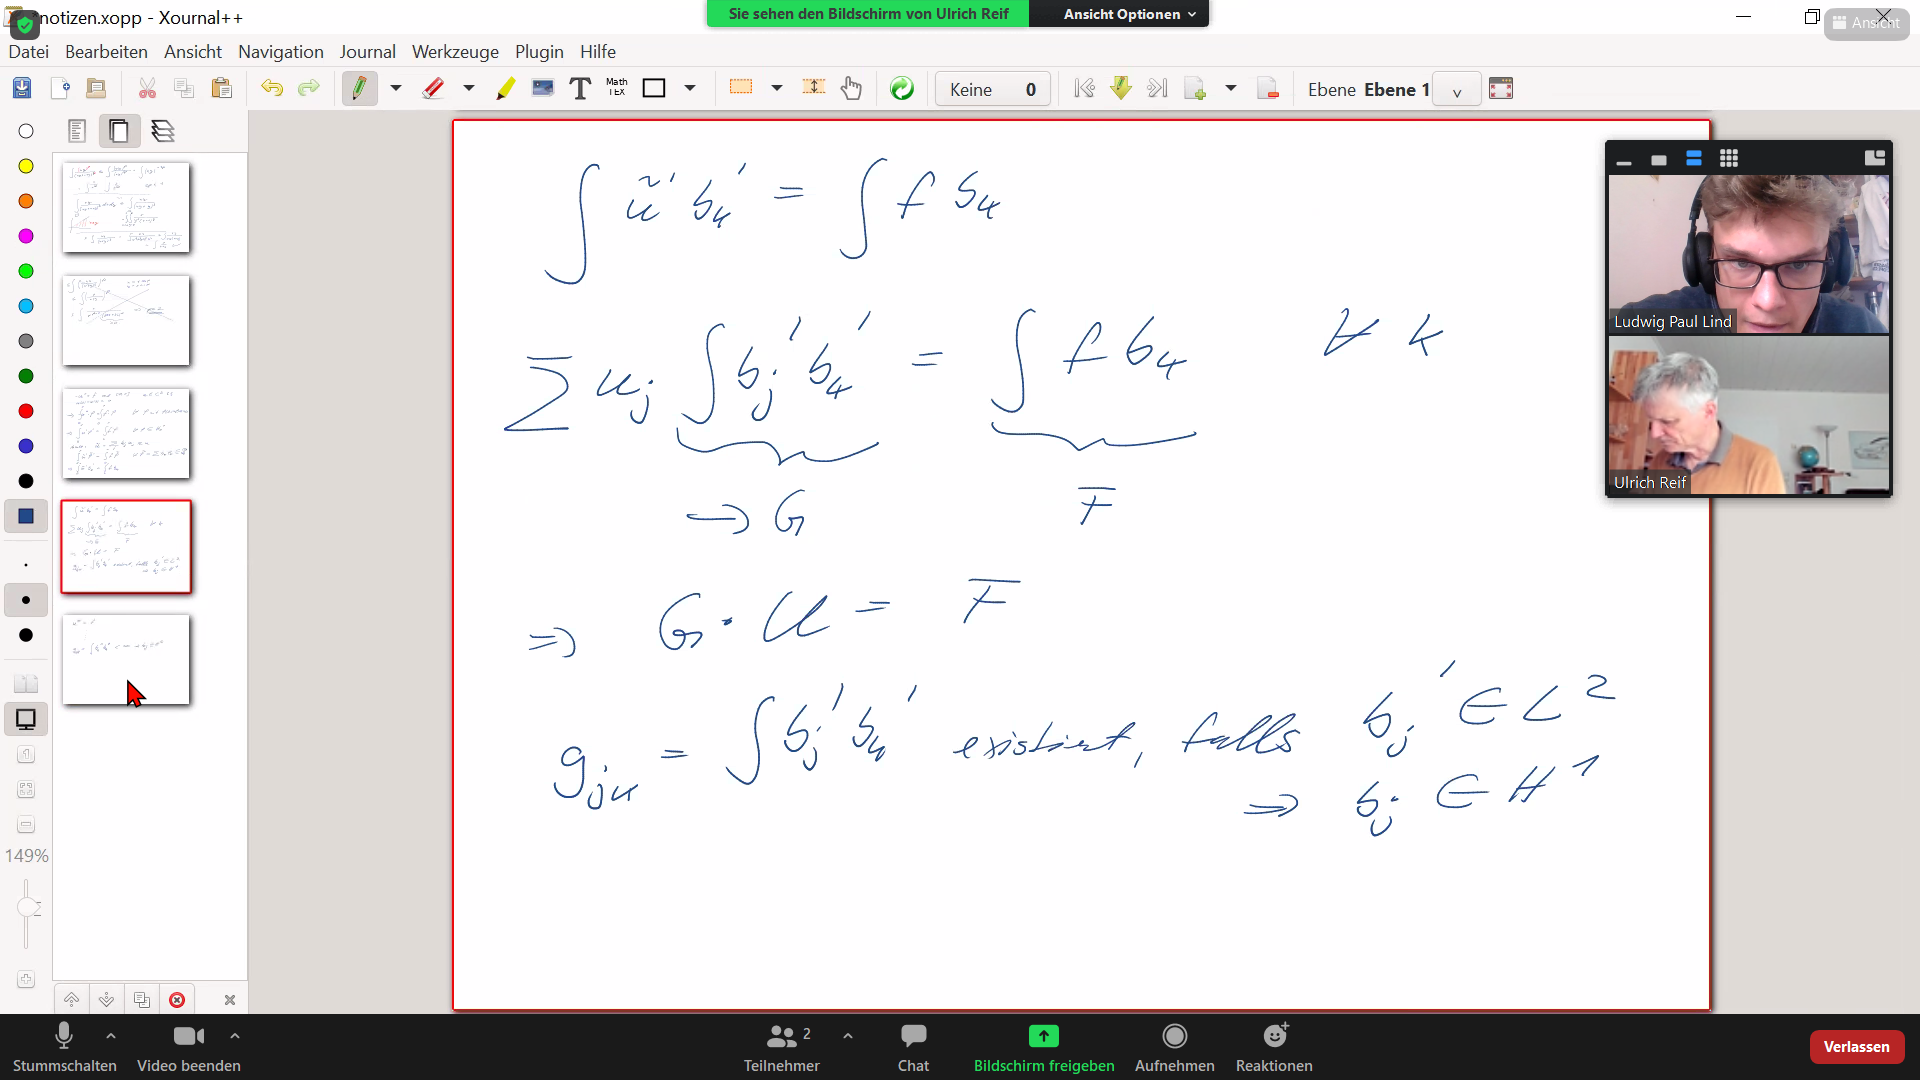 notizen.xopp - Xournal++
Sie sehen den Bildschirm von Ulrich Reif
Ansicht Optionen
Ansicht
Datei Bearbeiten Ansicht Navigation Journal Werkzeuge Plugin Hilfe
Math TEX
Keine 0
Ebene Ebene 1
∫ ũ' b_k' = ∫ f b_k
∑ u_j ∫ b_j' b_k' = ∫ f b_k ∀ k
→ G F
⇒ G · U = F
g_jk = ∫ b_j' b_k' existiert, falls b_j' ∈ L²
⇒ b_j ∈ H¹
Ludwig Paul Lind
Ulrich Reif
149%
Stummschalten
Video beenden
Teilnehmer 2
Chat
Bildschirm freigeben
Aufnehmen
Reaktionen
Verlassen